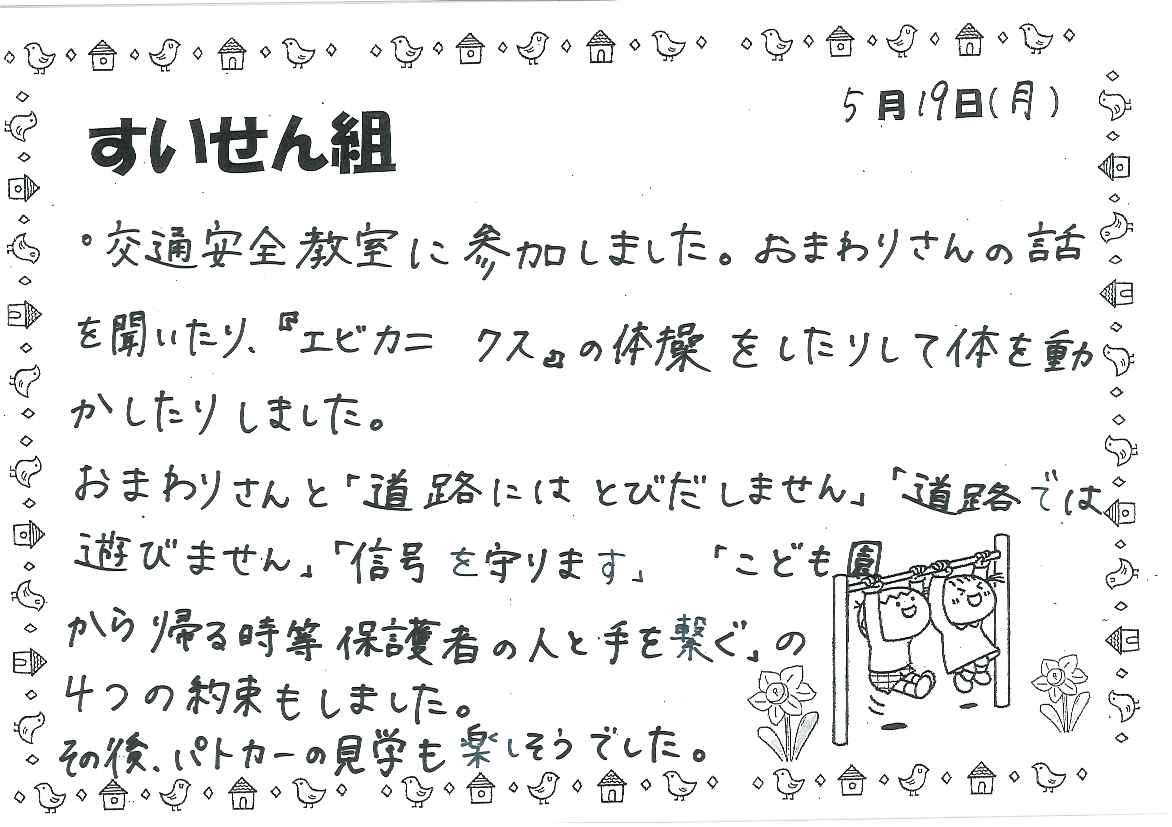 5月19日(月)
すいせん組
°交通安全教室に参加しました。おまわりさんの話
を聞いたり、『エビカニ クス』の体操をしたりして体を動
かしたりしました。
おまわりさんと「道路にはとびだしません」「道路では
遊びません」「信号を守ります」 「こども園
から帰る時等保護者の人と手を繋ぐ」の
4つの約束もしました。
その後、パトカーの見学も楽しそうでした。